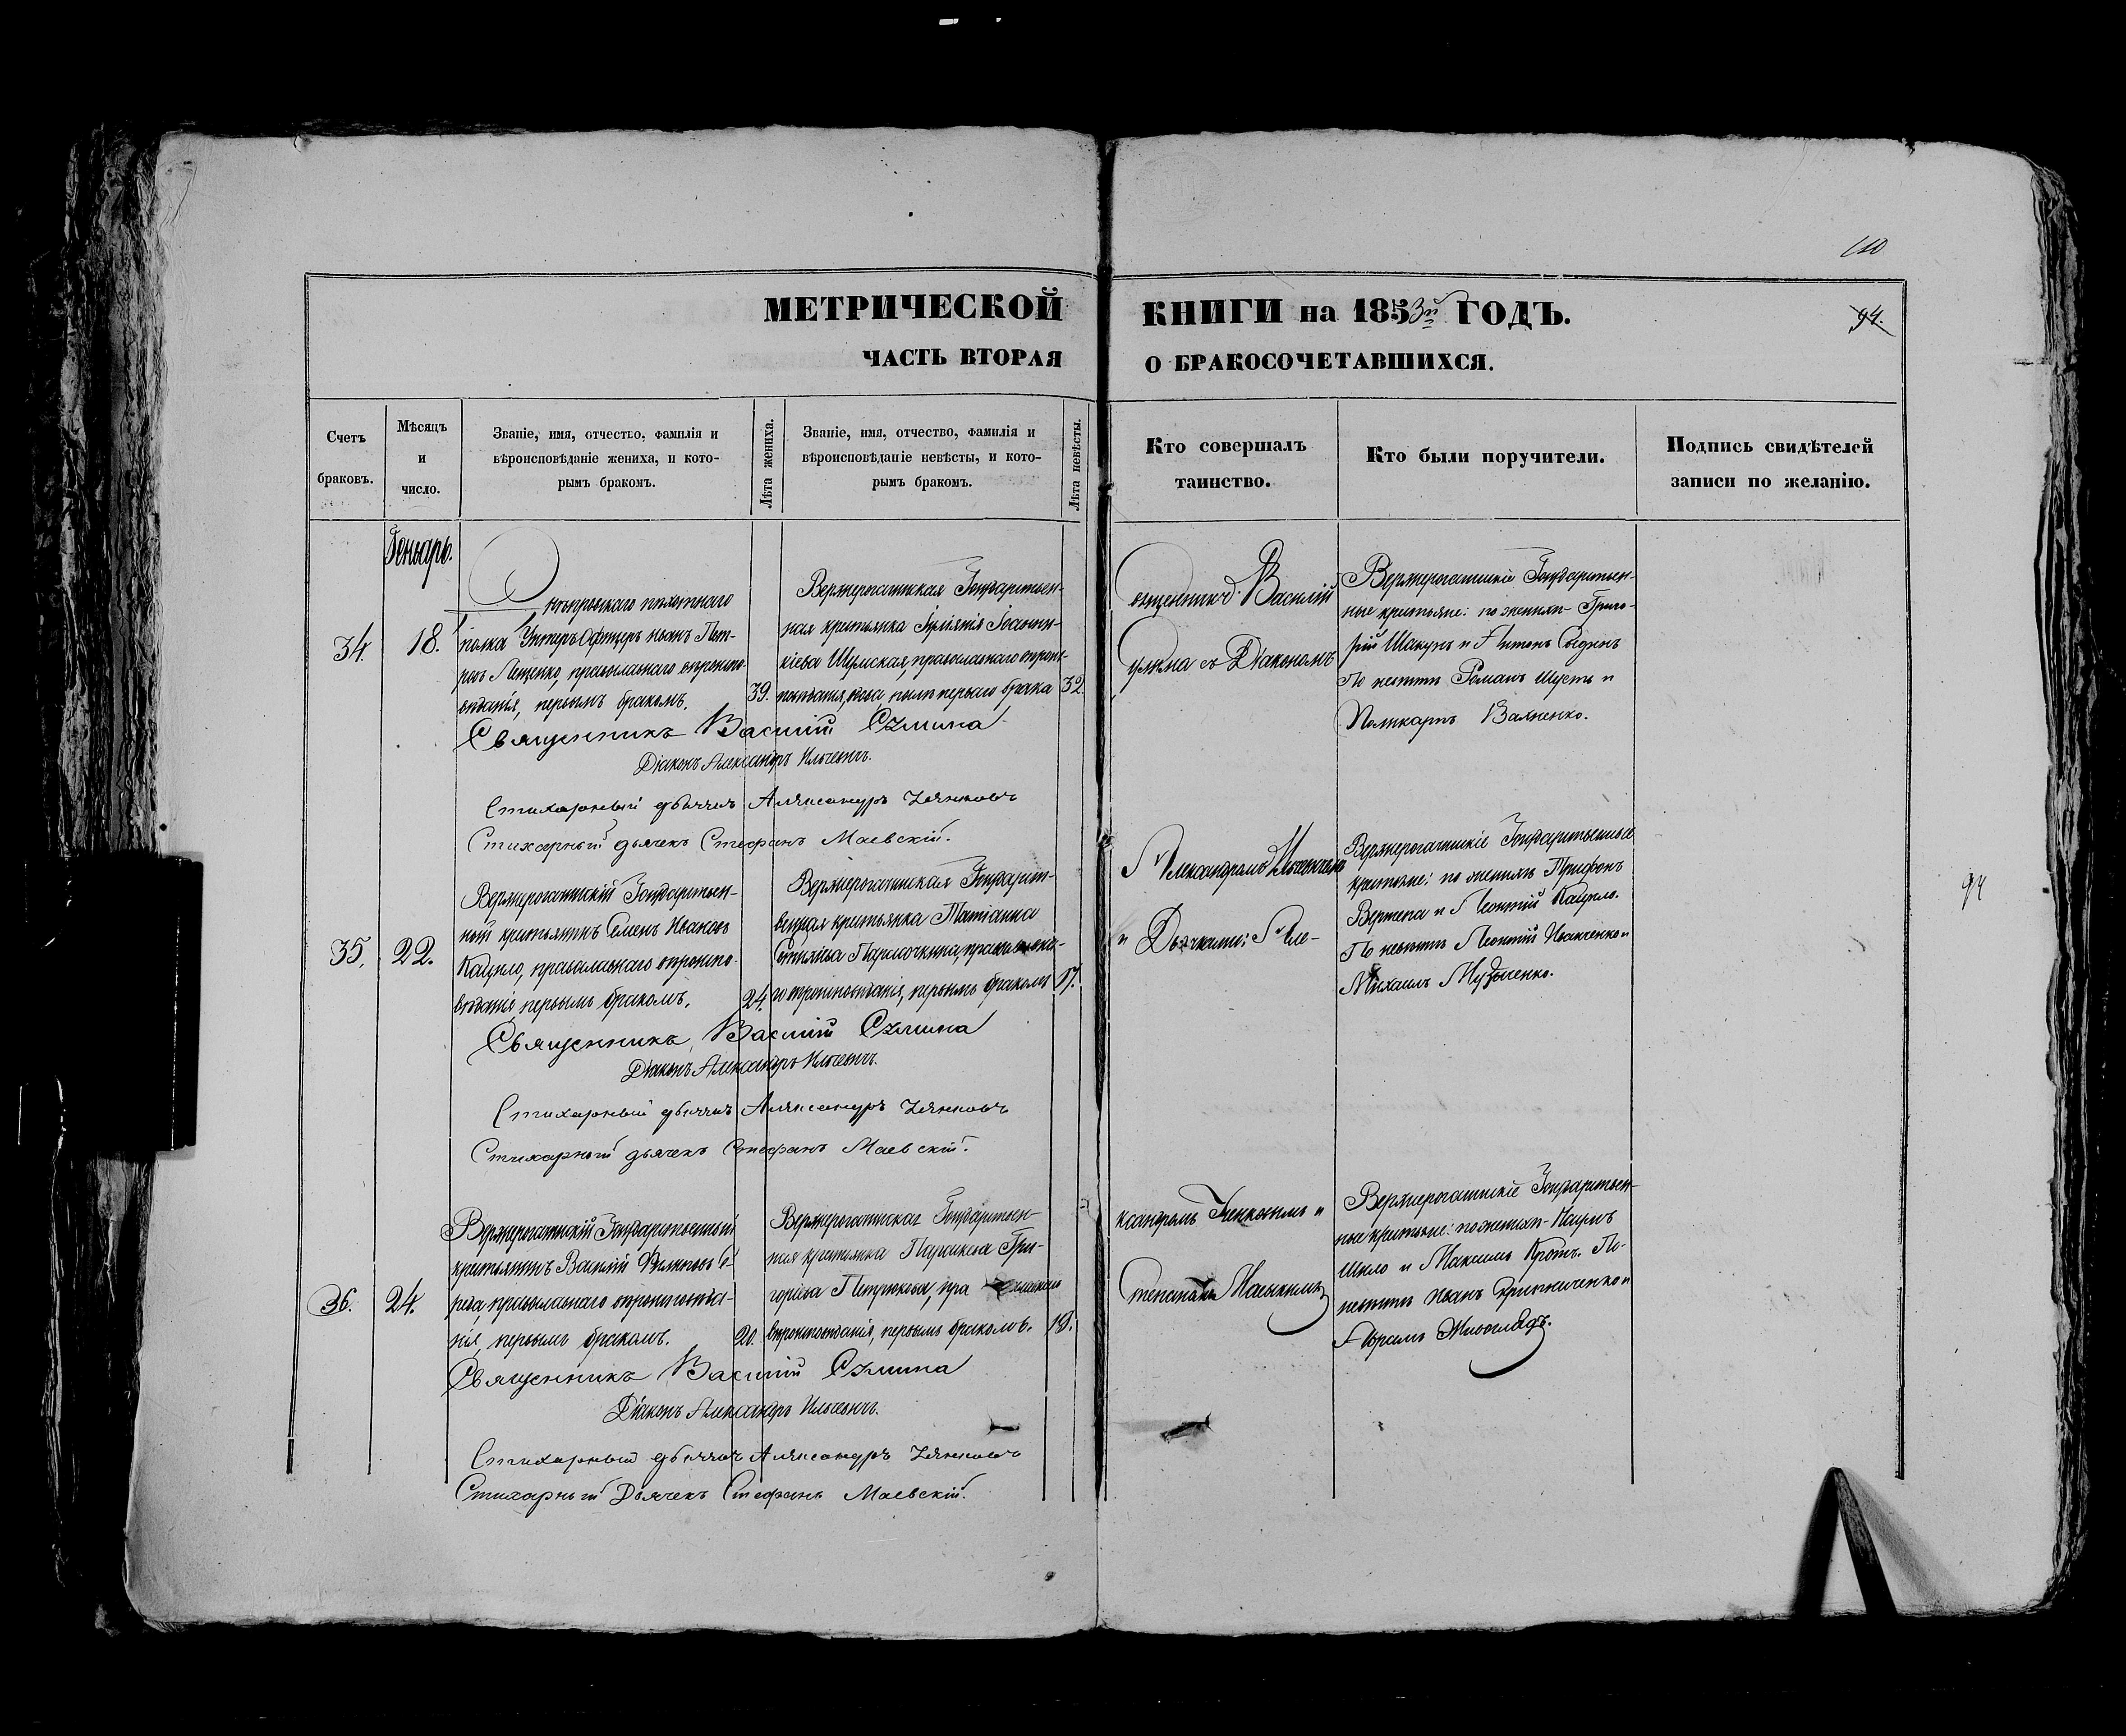 110
МЕТРИЧЕСКОЙ КНИГИ на 1853й ГОДЪ.
94.
ЧАСТЬ ВТОРАЯ О БРАКОСОЧЕТАВШИХСЯ.
Счетъ браковъ.
Мѣсяцъ и число.
Званіе, имя, отчество, фамилія и
вѣроисповѣданіе жениха, и кото-
рымъ бракомъ.
Лѣта жениха.
Званіе, имя, отчество, фамилія и
вѣроисповѣданіе невѣсты, и кото-
рымъ бракомъ.
Лѣта невѣсты.
Кто совершалъ
таинство.
Кто были поручители.
Подпись свидѣтелей
записи по желанію.
Генварь.
34.
18.
Днѣпровскаго пѣхотнаго
полка Унтеръ Офицеръ Иванъ Пет-
ровъ Лященко, православнаго вѣроиспо-
вѣданія, первымъ бракомъ.
39.
Верхнерогачикская Государствен-
ная крестьянка
Шумская, православнаго вѣроис-
повѣданія, вдова, послѣ перваго брака
32.
Священникъ Василій
съ Діакономъ
Верхнерогачикскіе Государствен-
ные крестьяне: по женихѣ Григо-
рій Шакунъ и Антонъ
По невѣстѣ Романъ Шусть и
Поликарпъ Вахненко.
Священникъ Василій
Діаконъ Александръ Ильчевичъ.
Стихарный дьячекъ Александръ
Стихарный дьячекъ Стефанъ Маевскій.
35.
22.
Верхнерогачикскій Государствен-
ный крестьянинъ Семенъ Ивановъ
Кацуло, православнаго вѣроиспо-
вѣданія первымъ бракомъ.
24.
Верхнерогачикская Государст-
венная крестьянка Татіанна
православна-
го вѣроисповѣданія, первымъ бракомъ
17.
Александромъ Ильчевичемъ
и Дьячками: Але-
Верхнерогачикскіе Государственные
крестьяне: по женихѣ Трифонъ
Вертепа и Леонтій Кацуло.
По невѣстѣ Леонтій Иванченко и
Михаилъ Музыченко.
Священникъ Василій
Діаконъ Александръ Ильчевичъ.
Стихарный дьячекъ Александръ
Стихарный дьячекъ Стефанъ Маевскій.
94
36.
24.
Верхнерогачикскій Государственный
крестьянинъ Василій Филиповъ
православнаго вѣроисповѣда-
нія, первымъ бракомъ.
20.
Верхнерогачикская Государствен-
ная крестьянка Гри-
горіева
вѣроисповѣданія, первымъ бракомъ.
18.
ксандромъ и
Маевскимъ
Верхнерогачикскіе Государствен-
ные крестьяне: по женихѣ Наумъ
Шило и Максимъ Кротъ. По
невѣстѣ Иванъ и
Абрамъ
Священникъ Василій
Діаконъ Александръ Ильчевичъ.
Стихарный дьячекъ Александръ
Стихарный Дьячекъ Стефанъ Маевскій.